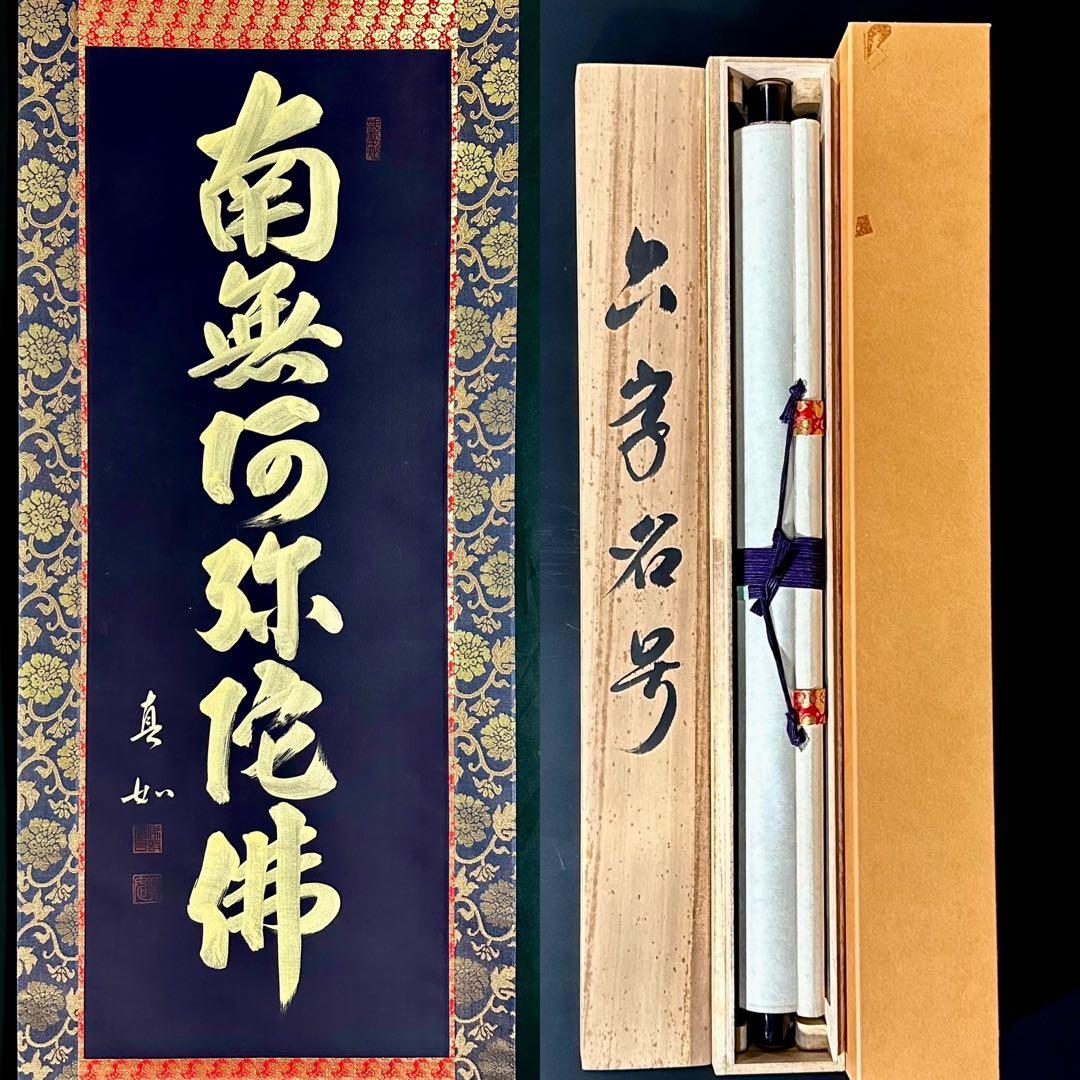 南無阿弥陀佛
真如
六字名号